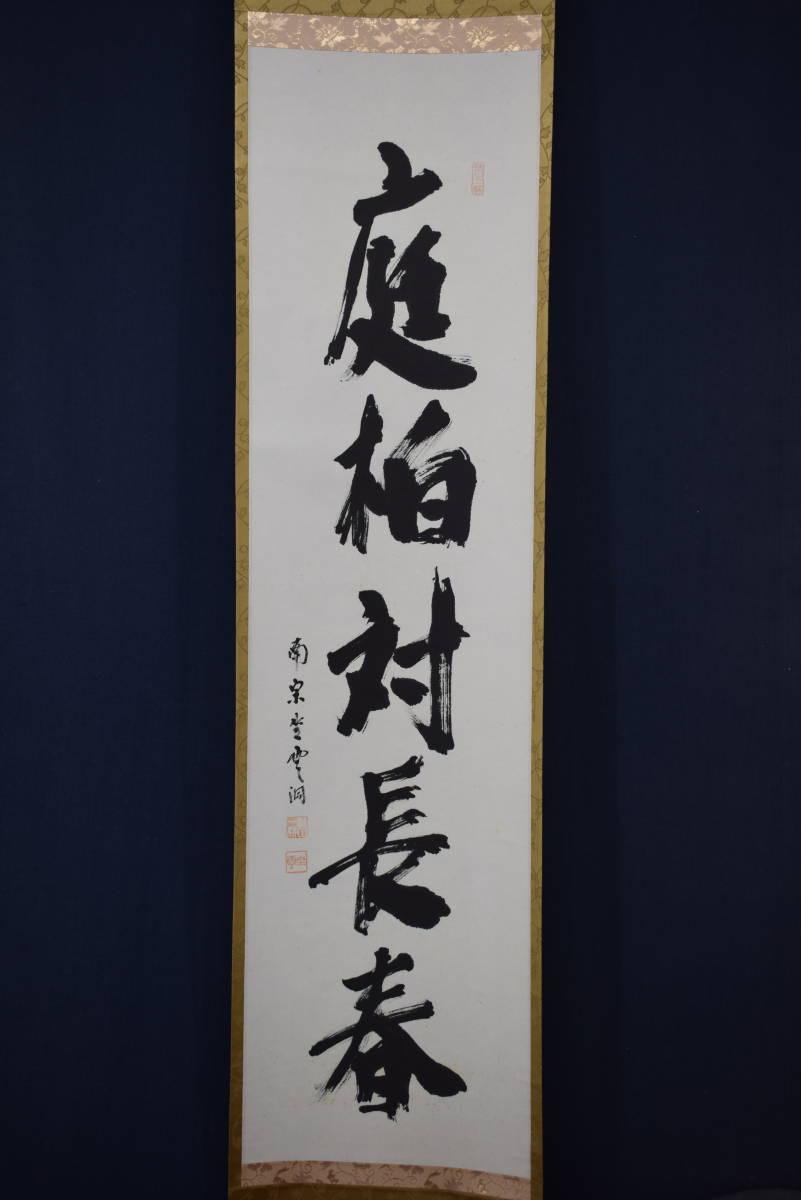 庭柏対長春
南宗坐雲洞